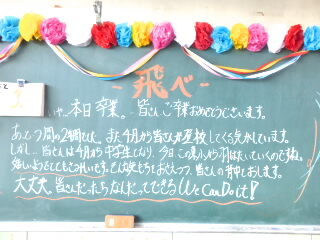 - 飛べ -
本日卒業。皆さんご卒業おめでとうございます。
あっという間の2年間でした。また4月から皆さんが登校してくる気がしています。
しかし、皆さんは4月から中学生となり、今日この 小から羽ばたいていくのですね。
気持ちをおさえつつ、皆さんの背中をおします。
大丈夫、皆さんだったらなんだってできる!We Can Do it!